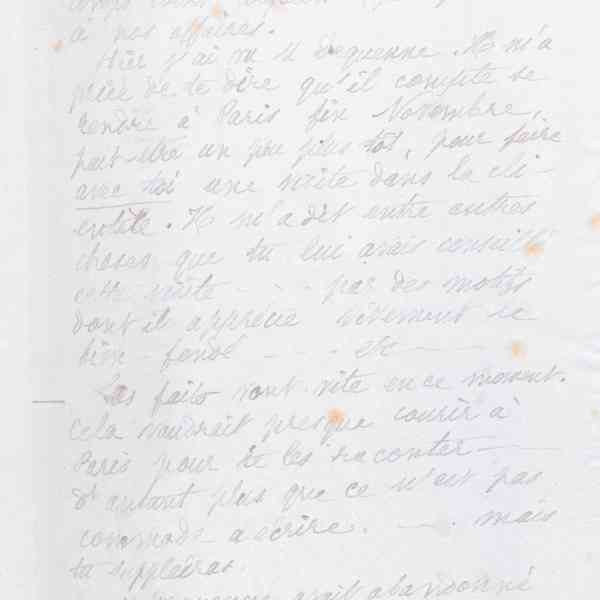 à nos affaires.
Hier j'ai vu M Dequenne. Il m'a
prié de te dire qu'il compte se
rendre à Paris fin Novembre,
peut-être un peu plus tôt, pour faire
avec toi une visite dans la cli-
entèle. Il m'a dit entre autres
choses que tu lui avais conseillé
cette visite - - - par des motifs
dont il apprécie vivement le
bien-fondé - - - etc
Les faits vont vite en ce moment.
Cela vaudrait presque courir à
Paris pour te les raconter
d'autant plus que ce n'est pas
commode à écrire. - . mais
tu suppléeras.
avait abandonné